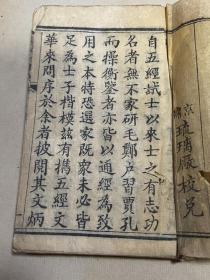 自五經試士以來士之有志功
名者無不家研毛鄭戶習賈孔
而操衡鑒者亦皆以通經為致
用之本特恐選家既衆未必皆
足為士子楷模茲有携五經文
華來問序於余者披閱其文炳
京
琉璃廠校兌